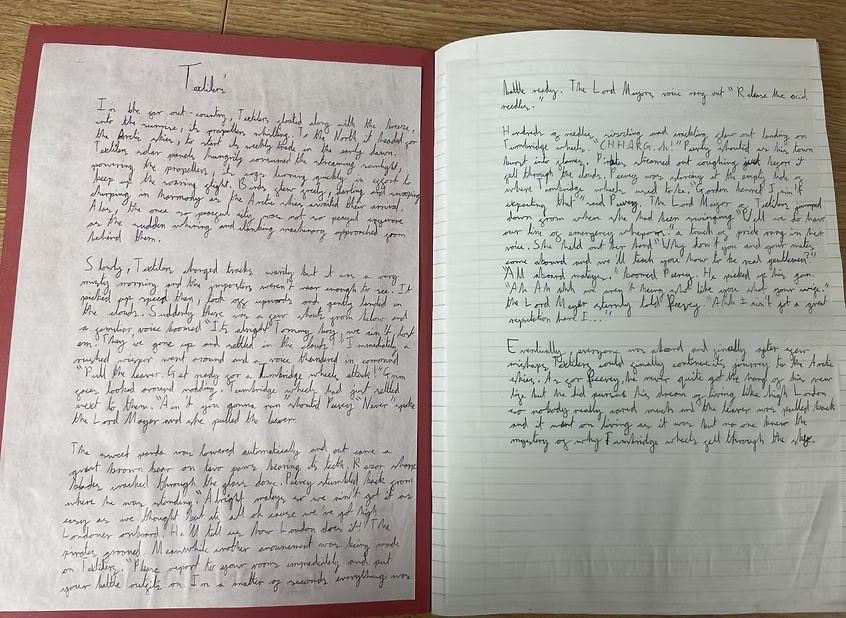 Textiler's
In the far out-country, Textilers floated along with the breeze,
into the sunrise, its propellers whistling. To the North it headed for
the Arctic skies, to start its weekly trade in the early dawn.
Textilers solar panels hungrily consumed the streaming sunlight,
powering the propellers, its cogs turning quickly in effort to
keep up the soaring flight. Birds flew freely, darting and swooping
chirping in harmony as the Arctic skies awaited their arrival.
Alas, the once so peaceful sky was not so peacful anymore
as the sudden whirring and clinking machinary approached from
behind them.
Slowly, Textilers changed tracks warily but it was a very
misty morning and the impostors weren't near enough to see. It
picked up speed then, took off upwards and gently landed in
the clouds. Suddenly there was a few shouts from below and
a familiar voice boomed "It's alright Tommy boy, we ain't lost
em. They've gone up and settled in the clouds!" Immediately a
rushed whisper went around and a voice thundered in command
"Pull the leaver. Get ready for a Tunbridge wheels attack!" Grim
faces looked around nodding. Tunbridge wheels had just settled
next to them. "Ain't you gonna run" shouted Peevey "Never" spoke
the Lord Mayor and she pulled the leaver.
The sweet panda was lowered automatically and out came a
great brown bear on two paws bearing its teeth. Razor sharp
blades wacked through the glass dome. Peevey stumbled back from
where he was standing. "Alright mateys so we ain't got it as
easy as we thought but its all of cause we've got high
Londoner onboard. He'll tell us how London does it!" The
pirates groaned. Meanwhile another anouncement was being made
on Textilers. "Please report to your rooms immediately and put
your battle outfits on. In a matter of seconds everything was
battle ready. The Lord Mayors voice rang out "Release the acid
needles."
Hundreds of needles, sizzling and crackling flew out landing on
Tunbridge wheels. "CHHARG, oh!" Peevey shouted as his town
burst into flames. Pirates streamed out coughing just before it
fell through the clouds. Peevey was staring at the empty hole of
where Tunbridge wheels used to be. "Gorden bennet I ain't
expecting that" said Peevey. The Lord Mayor of Textilers jumped
down from where she had been swinging "Well we do have
our line of emergency wheapons." a touch of pride rang in her
voice. She held out her hand "Why don't you and your mates
come abourd and we'll teach you how to be real gentlemen?"
"All abourd mateys." boomed Peevey. He picked up his gun.
"Ah Ah ahh we won't be needing that like you what your were."
the Lord Mayor sternly told Peevey. "Ahh I ain't got a great
reputation have I..."
Eventually everyone was abourd and finally after few
mishaps Textilers could finally continue its journey to the Arctic
skies. As for Peevey, he never quite got the hang of his new
life but he did persue his dream of living like high London
so nobody really cared much and the leaver was pulled back
and it went on living as it was but no one knew the
mystery of why Tunbridge wheels fell through the sky.